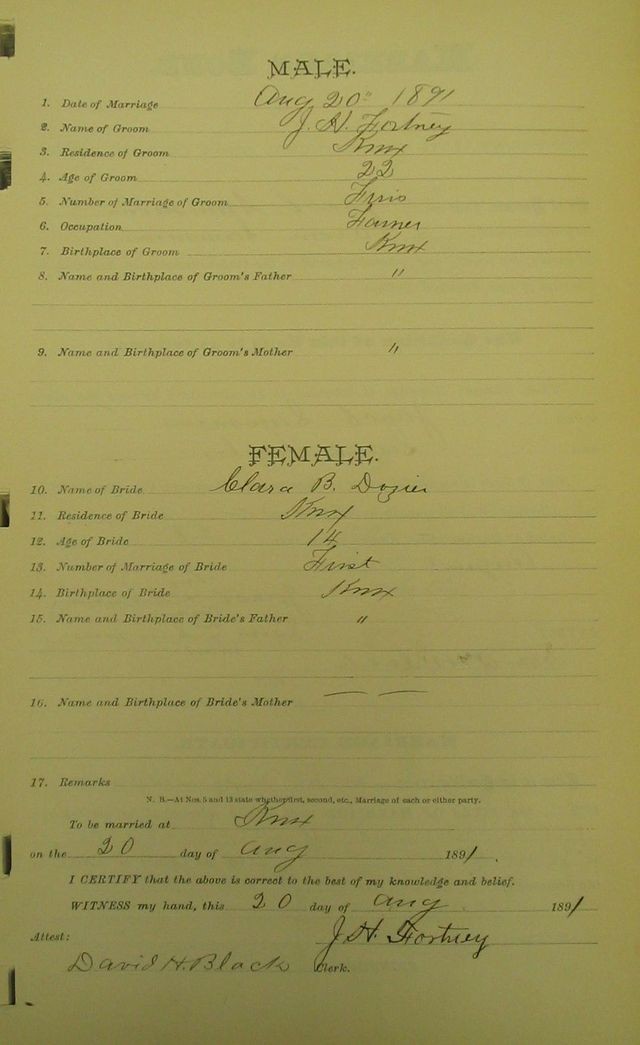 MALE.
1. Date of Marriage Aug 20" 1891
2. Name of Groom J. H. Fortney
3. Residence of Groom Knox
4. Age of Groom 22
5. Number of Marriage of Groom
6. Occupation Farmer
7. Birthplace of Groom Knox
8. Name and Birthplace of Groom's Father "
9. Name and Birthplace of Groom's Mother "
FEMALE.
10. Name of Bride Clara B. Dozier
11. Residence of Bride Knox
12. Age of Bride 14
13. Number of Marriage of Bride First
14. Birthplace of Bride Knox
15. Name and Birthplace of Bride's Father "
16. Name and Birthplace of Bride's Mother — —
17. Remarks
N. B.—At Nos. 5 and 13 state whether first, second, etc., Marriage of each or either party.
To be married at Knox
on the 20 day of Aug 1891.
I CERTIFY that the above is correct to the best of my knowledge and belief.
WITNESS my hand, this 20 day of Aug 1891
J. H. Fortney
Attest:
David H. Black Clerk.